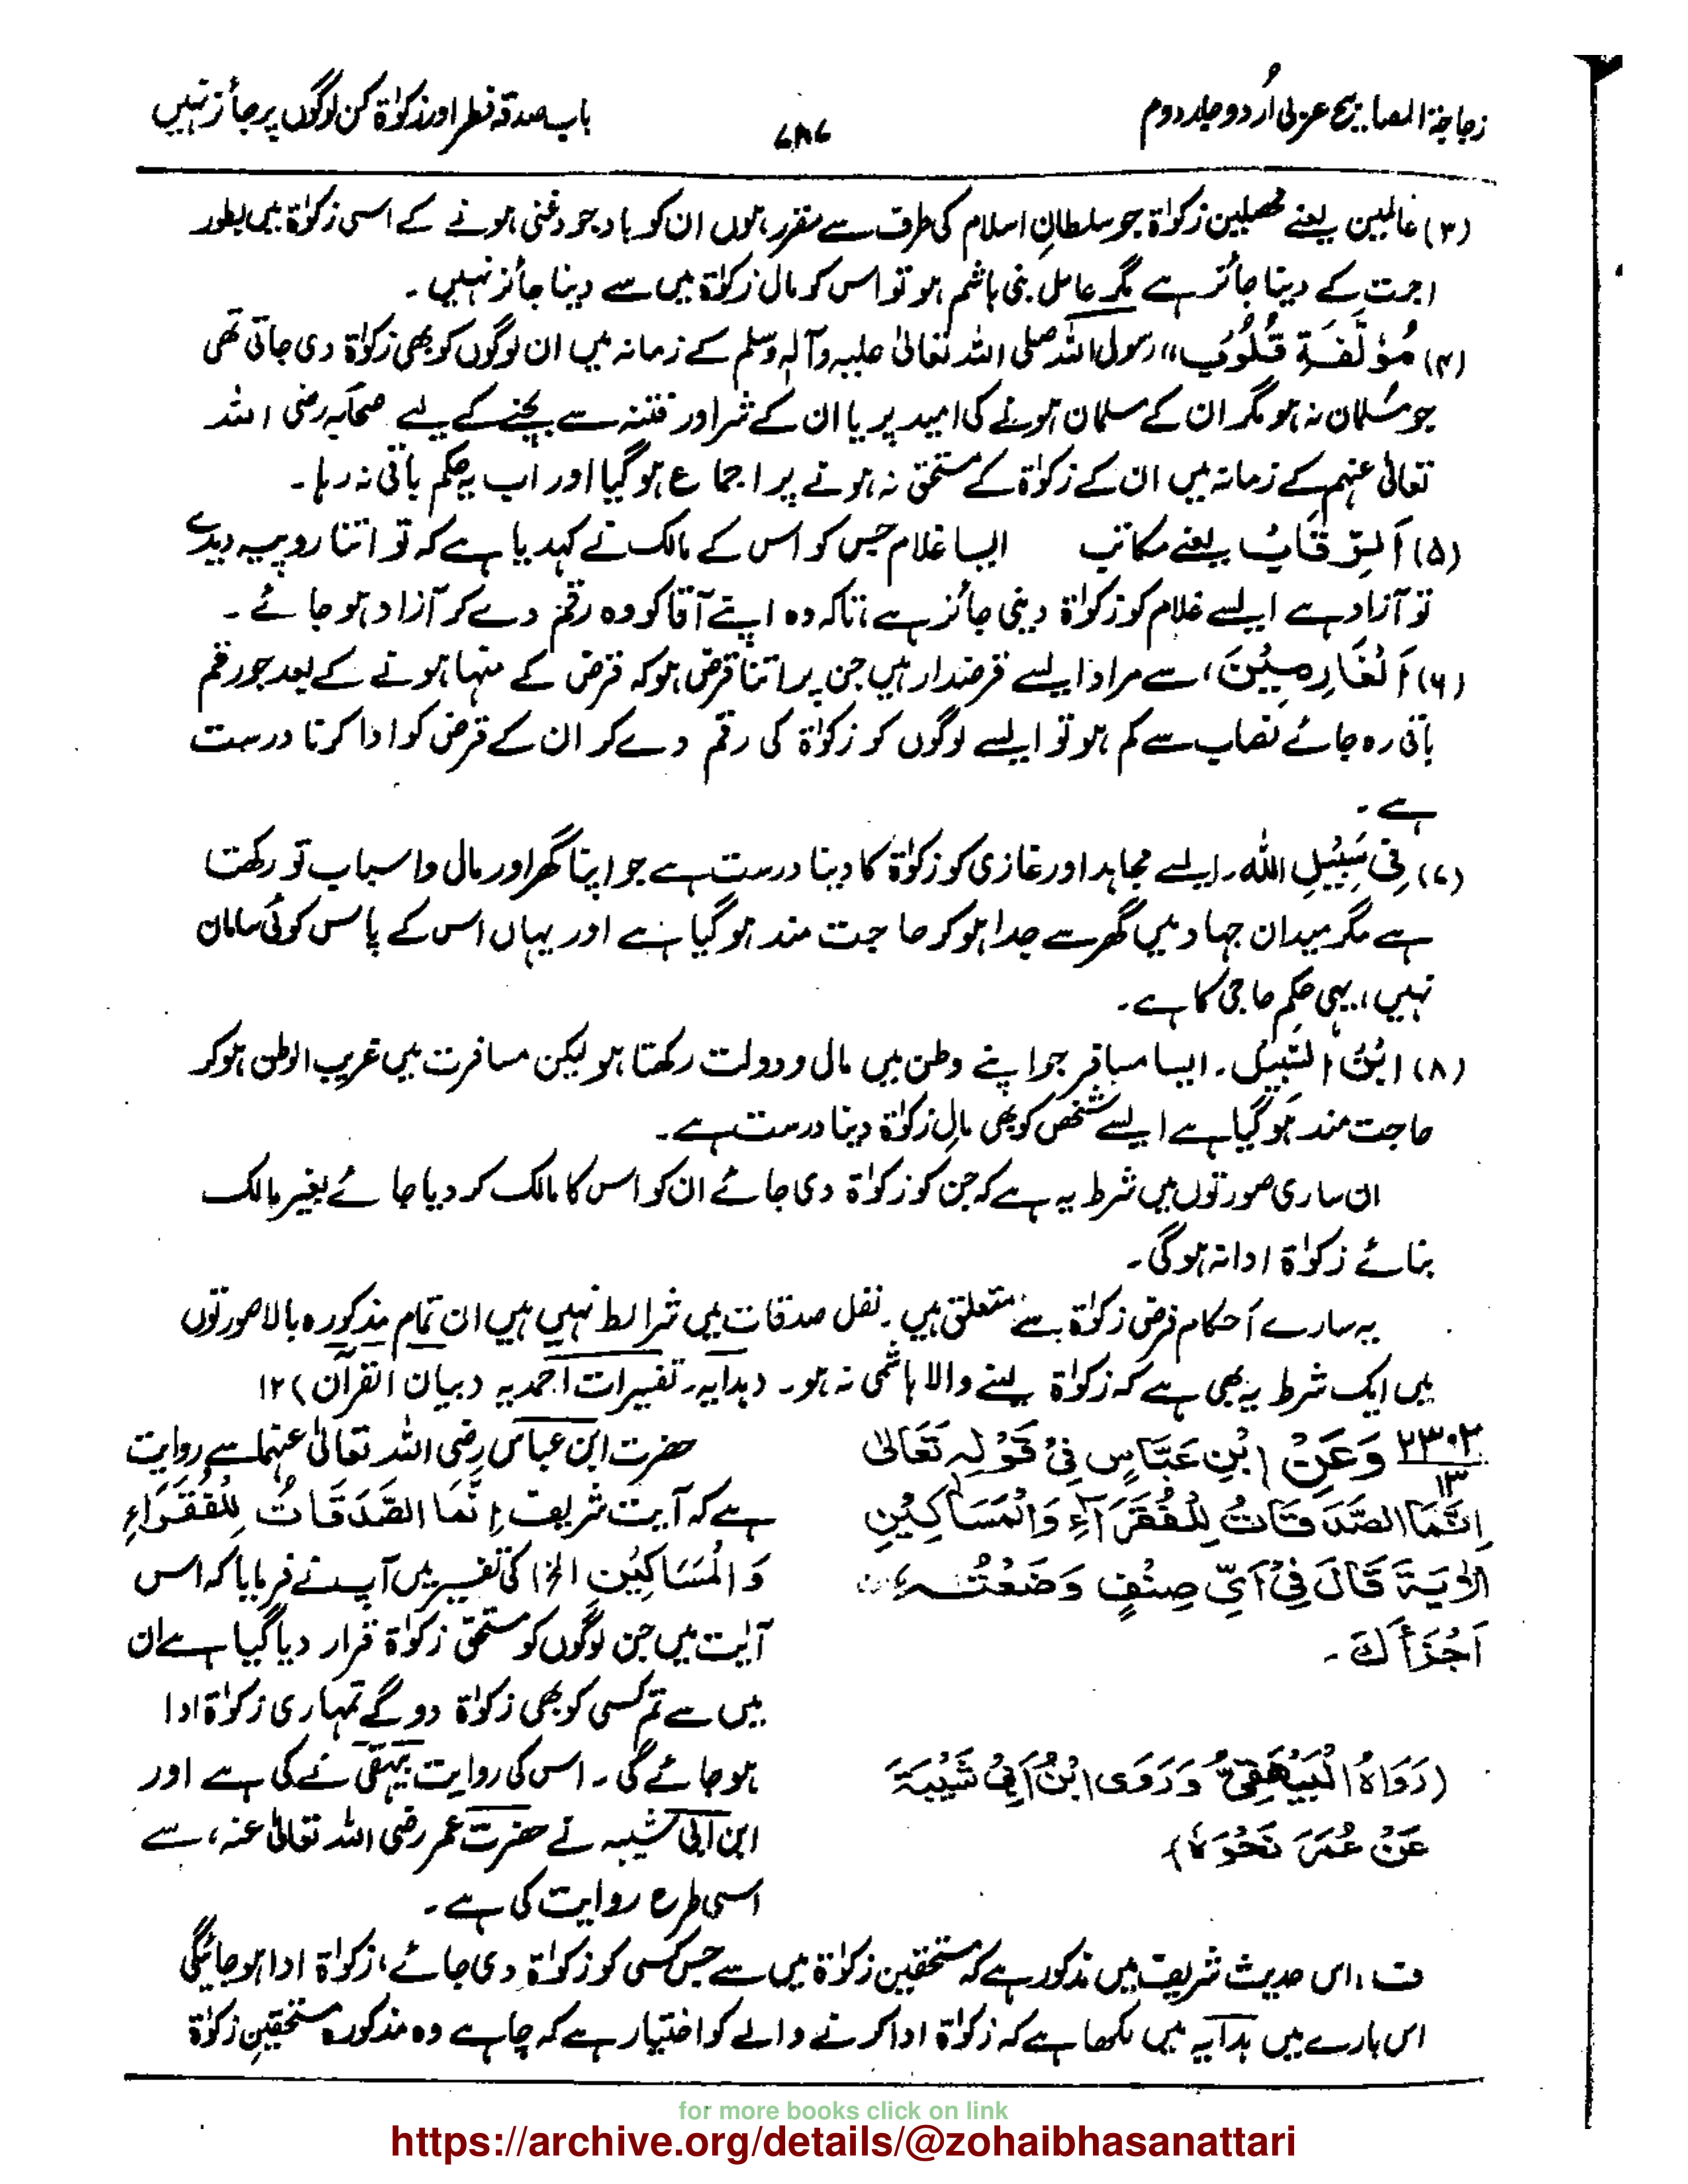 زجاجۃ المصابیح عربی اُردو جلد دوم
۷۸۷
باب صدقہ فطر اور زکوٰۃ کن لوگوں پر جائز نہیں
(۳) عاملین یعنے محصلین زکوٰۃ جو سلطانِ اسلام کی طرف سے مقرر ہوں ان کو باوجود غنی ہونے کے اسی زکوٰۃ میں بطور
اجرت کے دینا جائز ہے مگر عامل بنی ہاشم ہو تو اس کو مال زکوٰۃ میں سے دینا جائز نہیں ۔
(۴) مُؤَلَّفَۃِ قُلُوْب،، رسول اللہ صلی اللہ تعالیٰ علیہ وآلہٖ وسلم کے زمانہ میں ان لوگوں کو بھی زکوٰۃ دی جاتی تھی
جو مُسلمان نہ ہو مگر ان کے مسلمان ہونے کی امید پر یا ان کے شر اور فتنہ سے بچنے کے لیے صحابہ رضی اللہ
تعالیٰ عنہم کے زمانہ میں ان کے زکوٰۃ کے مستحق نہ ہونے پر اجماع ہو گیا اور اب یہ حکم باقی نہ رہا ۔
(۵) اَلرِّقَابُ یعنے مکاتب ایسا غلام جس کو اس کے مالک نے کہدیا ہے کہ تو اتنا روپیہ دیدے
تو آزاد ہے ایسے غلام کو زکوٰۃ دینی جائز ہے تاکہ وہ اپنے آقا کو وہ رقم دے کر آزاد ہو جائے ۔
(۶) اَلْغَارِمِیْنَ، سے مراد ایسے قرضدار ہیں جن پر اتنا قرض ہو کہ قرض کے منہا ہونے کے بعد جو رقم
باقی رہ جائے نصاب سے کم ہو تو ایسے لوگوں کو زکوٰۃ کی رقم دے کر ان کے قرض کو ادا کرنا درست
ہے ۔
(۷) فِیْ سَبِیْلِ اللہ ۔ ایسے مجاہد اور غازی کو زکوٰۃ کا دینا درست ہے جو اپنا گھر اور مال و اسباب تو رکھتا
ہے مگر میدان جہاد میں گھر سے جدا ہو کر حاجت مند ہو گیا ہے اور یہاں اس کے پاس کوئی سامان
نہیں، یہی حکم حاجی کا ہے ۔
(۸) ابْنُ السَّبِیْل ۔ ایسا مسافر جو اپنے وطن میں مال و دولت رکھتا ہو لیکن مسافرت میں غریب الوطن ہو کر
حاجت مند ہو گیا ہے ایسے شخص کو بھی مالِ زکوٰۃ دینا درست ہے ۔
ان ساری صورتوں میں شرط یہ ہے کہ جن کو زکوٰۃ دی جائے ان کو اس کا مالک کر دیا جائے بغیر مالک
بنائے زکوٰۃ ادا نہ ہوگی ۔
یہ سارے احکام فرض زکوٰۃ سے متعلق ہیں ۔ نفل صدقات میں شرائط نہیں ہیں ان تمام مذکورہ بالا صورتوں
میں ایک شرط یہ بھی ہے کہ زکوٰۃ لینے والا ہاشمی نہ ہو ۔ (ہدایہ ۔ تفسیرات احمدیہ و بیان القرآن) ۱۲
۲۳۰۲ وَعَنْ ابْنِ عَبَّاسٍ فِیْ قَوْلِہٖ تَعَالٰی
۱۳
اِنَّمَا الصَّدَقَاتُ لِلْفُقَرَآءِ وَالْمَسَاکِیْنِ
الْاٰیَۃَ قَالَ فِیْ اَیِّ صِنْفٍ وَضَعْتَہٗ
اَجْزَأَکَ ۔
(رَوَاہُ الْبَیْھَقِیُّ وَرَوَی ابْنُ اَبِیْ شَیْبَۃَ
عَنْ عُمَرَ نَحْوَہٗ)
حضرت ابن عباس رضی اللہ تعالیٰ عنہما سے روایت
ہے کہ آیت شریف اِنَّمَا الصَّدَقَاتُ لِلْفُقَرَاءِ
وَالْمَسَاکِیْنِ الخ کی تفسیر میں آپ نے فرمایا کہ اس
آیت میں جن لوگوں کو مستحق زکوٰۃ قرار دیا گیا ہے ان
میں سے تم کسی کو بھی زکوٰۃ دو گے تمہاری زکوٰۃ ادا
ہو جائے گی ۔ اس کی روایت بیہقی نے کی ہے اور
ابن ابی شیبہ نے حضرت عمر رضی اللہ تعالیٰ عنہ، سے
اسی طرح روایت کی ہے ۔
ف، اس حدیث شریف میں مذکور ہے کہ مستحقین زکوٰۃ میں سے جس کسی کو زکوٰۃ دی جائے، زکوٰۃ ادا ہو جائیگی
اس بارے میں ہدایہ میں لکھا ہے کہ زکوٰۃ ادا کرنے والے کو اختیار ہے کہ چاہے وہ مذکورہ مستحقینِ زکوٰۃ
for more books click on link
https://archive.org/details/@zohaibhasanattari